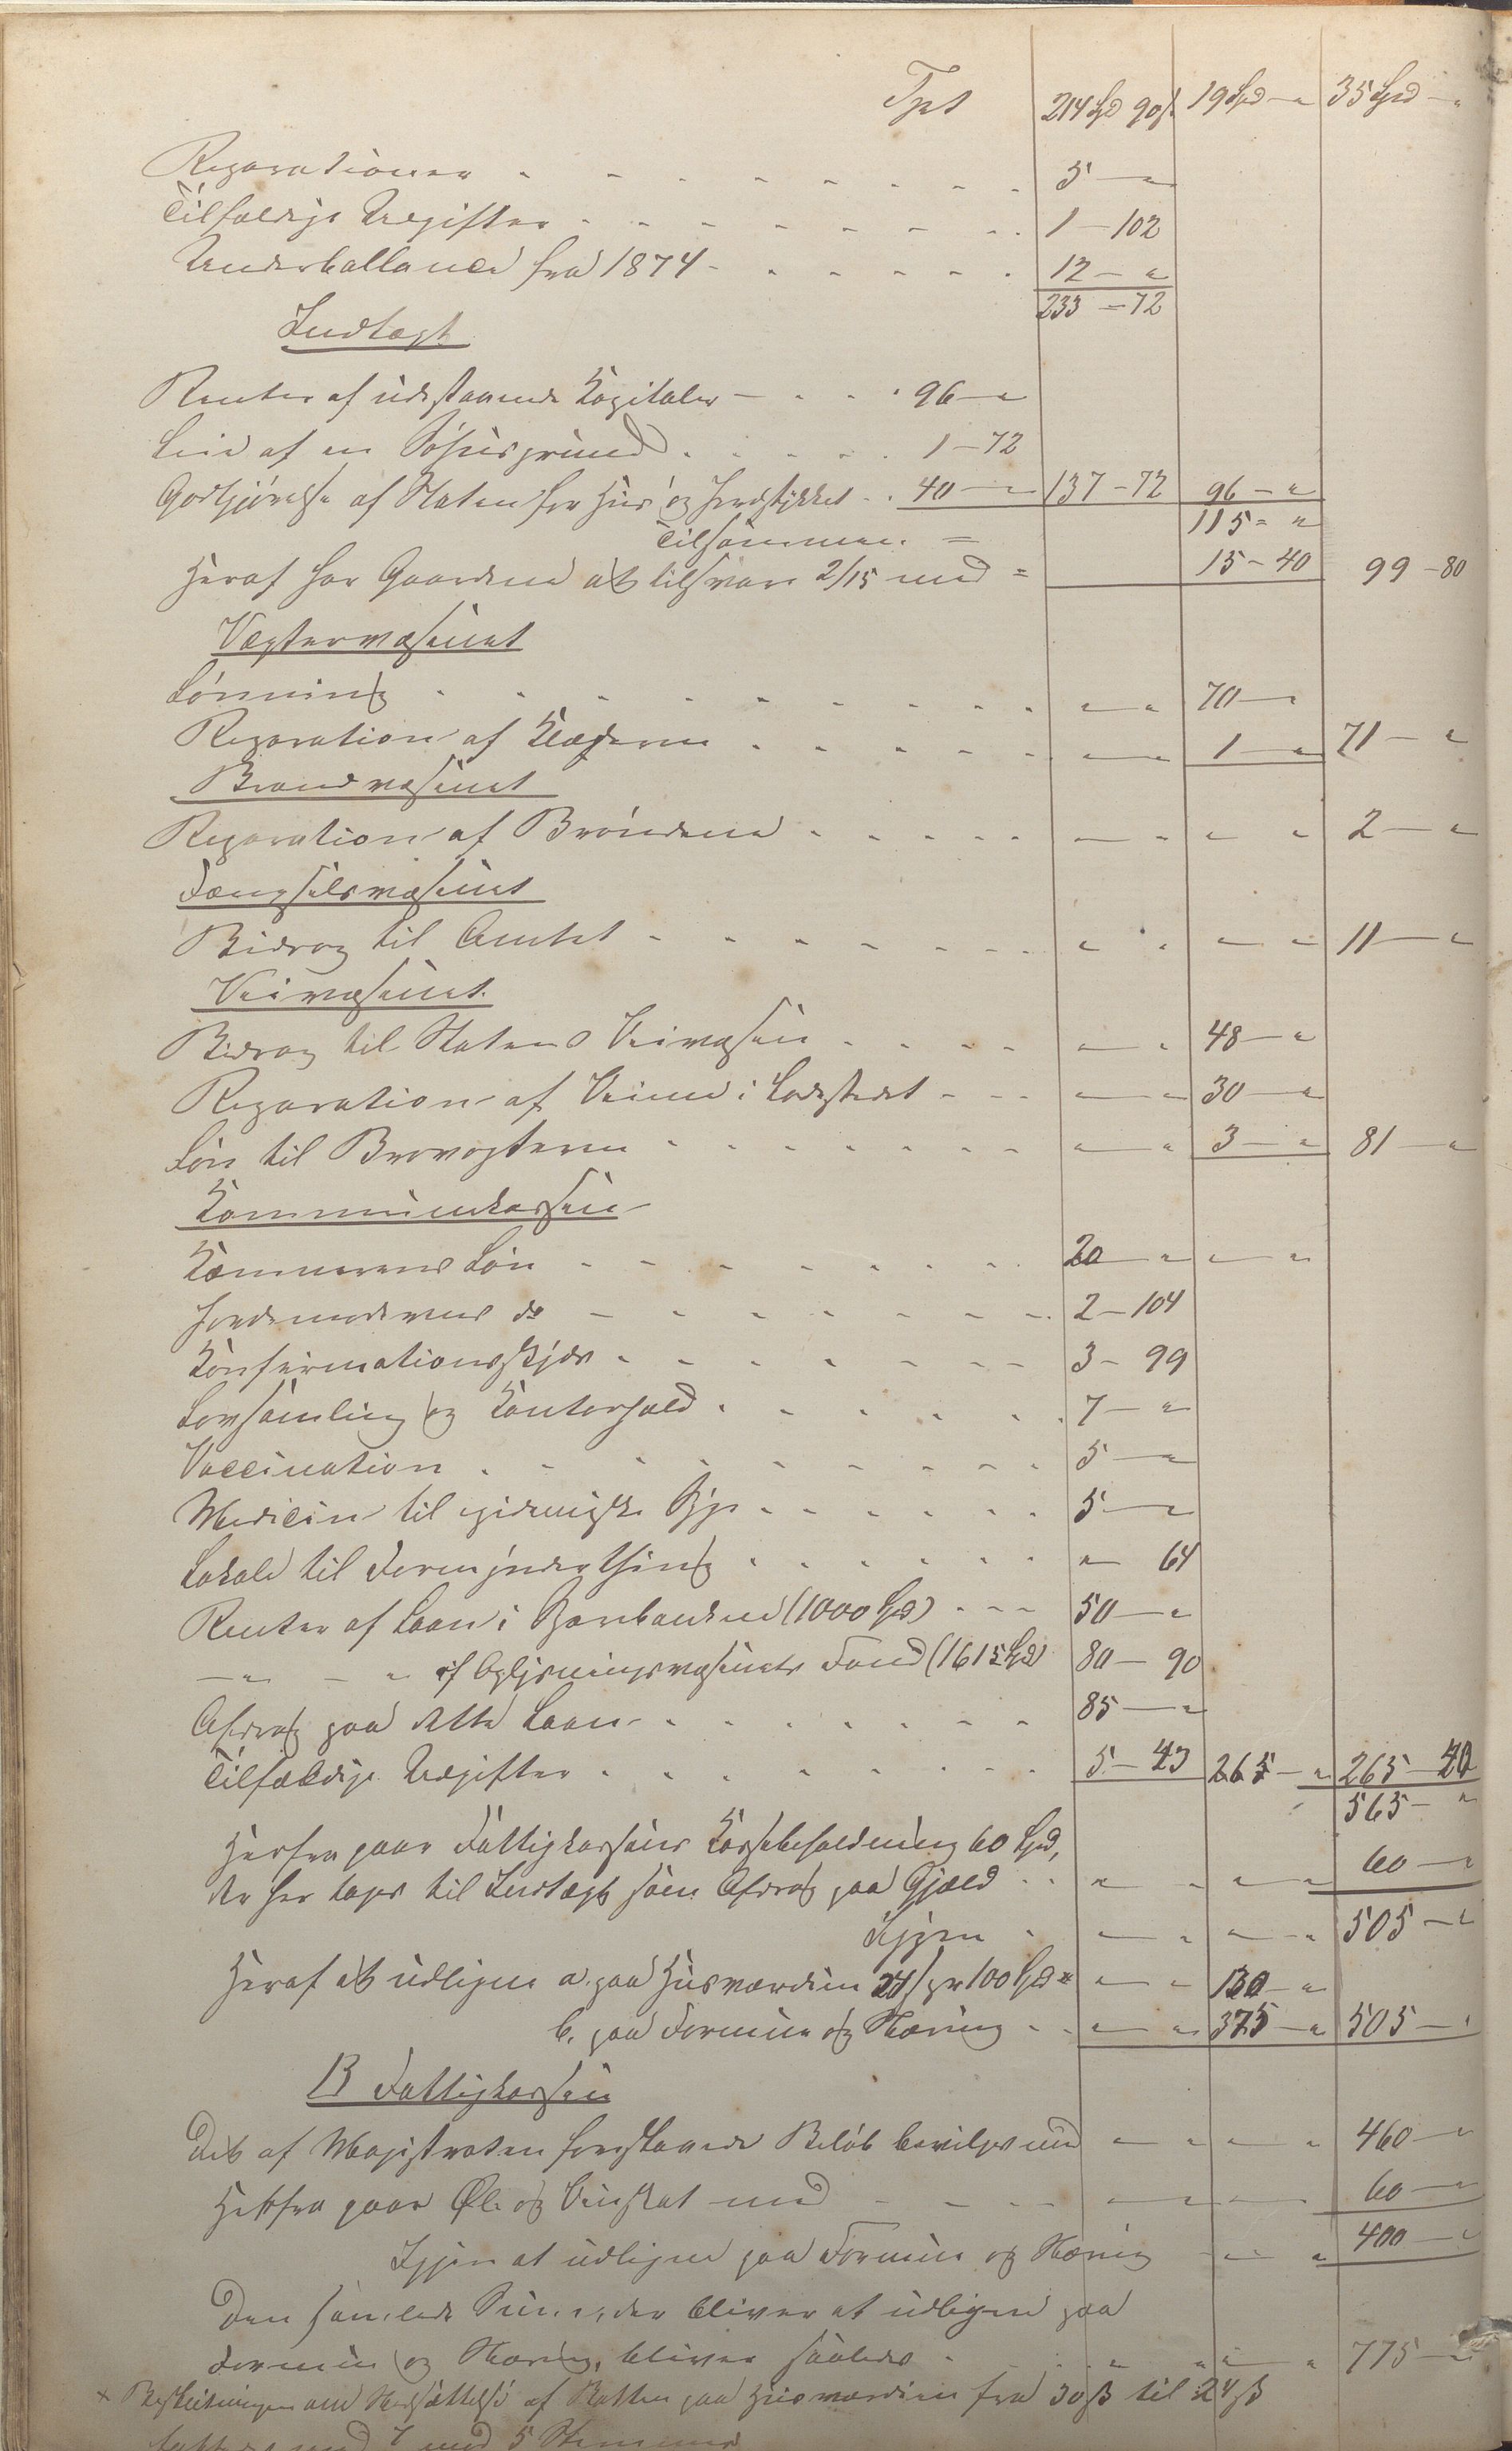 Tpt 214 Spd 90 ß 19 Spd — " 35 Spd — "
Reparationer - - - - - - - - 5 — "
Tilfældige Udgifter - - - - - - - 1 — 102
Underballance fra 1874 - - - - - - 12 — "
233 — 72
Indtægt
Renter af udestaaende Kapitaler — - - - 96 — "
Leie af en Søhusgrund - - - - - 1 — 72
Godtgjørelse af Staten for Hus og Jordstykket - - 40 — " 137 — 72 96 — "
Tilsammen = 115 = "
Heraf har Gaardene at tilsvare 2/15 med = 15 — 40 99 — 80
Vægtervæsenet
Lønning - - - - - - - - - — " 70 — "
Reparation af Klæderne - - - - - — " 1 — " 71 — "
Brandvæsenet
Reparation af Brøndene - - - - - — " " " 2 — "
Fængselsvæsenet
Bidrag til Amtet - - - - - - - " " — " 11 — "
Veivæsenet.
Bidrag til Statens Veivæsen - - - - — " 48 — "
Reparation af Veiene i Ladestedet - - - — " 30 — "
Løn til Brovogteren - - - - - - — " 3 — " 81 — "
Kommunekassen
Kæmnerens Løn - - - - - - - 20 — " — "
Jordemoderens do — - - - - - - 2 — 104
Konfirmationskjør - - - - - - 3 — 99
Lovsamling og Kontorhold - - - - - 7 — "
Vaccination - - - - - - - - 5 — "
Medicin til epidemiske Syge - - - - - 5 — "
Lokale til Formynderthing - - - - - " — 64
Renter af Laan i Sparebanken (1000 Spd) - - - 50 — "
— " — " af Oplysningsvæsenets Fond (1615 Spd) 80 — 90
Afdrag paa dette Laan - - - - - - 85 — "
Tilfældige Udgifter - - - - - - - 5 — 43 265 — " 265 — 40
565 — "
Herfra gaar Fattigkassens Kassebeholdning 60 Spd,
der her tages til Indtægt som Afdrag paa Gjæld - - " - — " 60 — "
Igjen - — " — " 505 — "
Heraf at udligne a. paa Husværdien 24 ß pr 100 Spd × — " 130 — "
b. paa Formue og Næring - - — " 375 — " 505 — "
B Fattigkassen
Det af Magistraten foreslaaede Beløb bevilges med — " — " 460 — "
Herfra gaar Øl- og Vinskat med - - - - — " — 60 — "
Igjen at udligne paa Formue og Næring — " 400 — "
Den samlede Sum, der bliver at udligne paa
Formue og Næring, bliver saaledes - - - " — " 775 — "
× Beslutningen om Nedsættelse af Skatten paa Husværdien fra 30 ß til 24 ß
7 mod 5 Stemmer